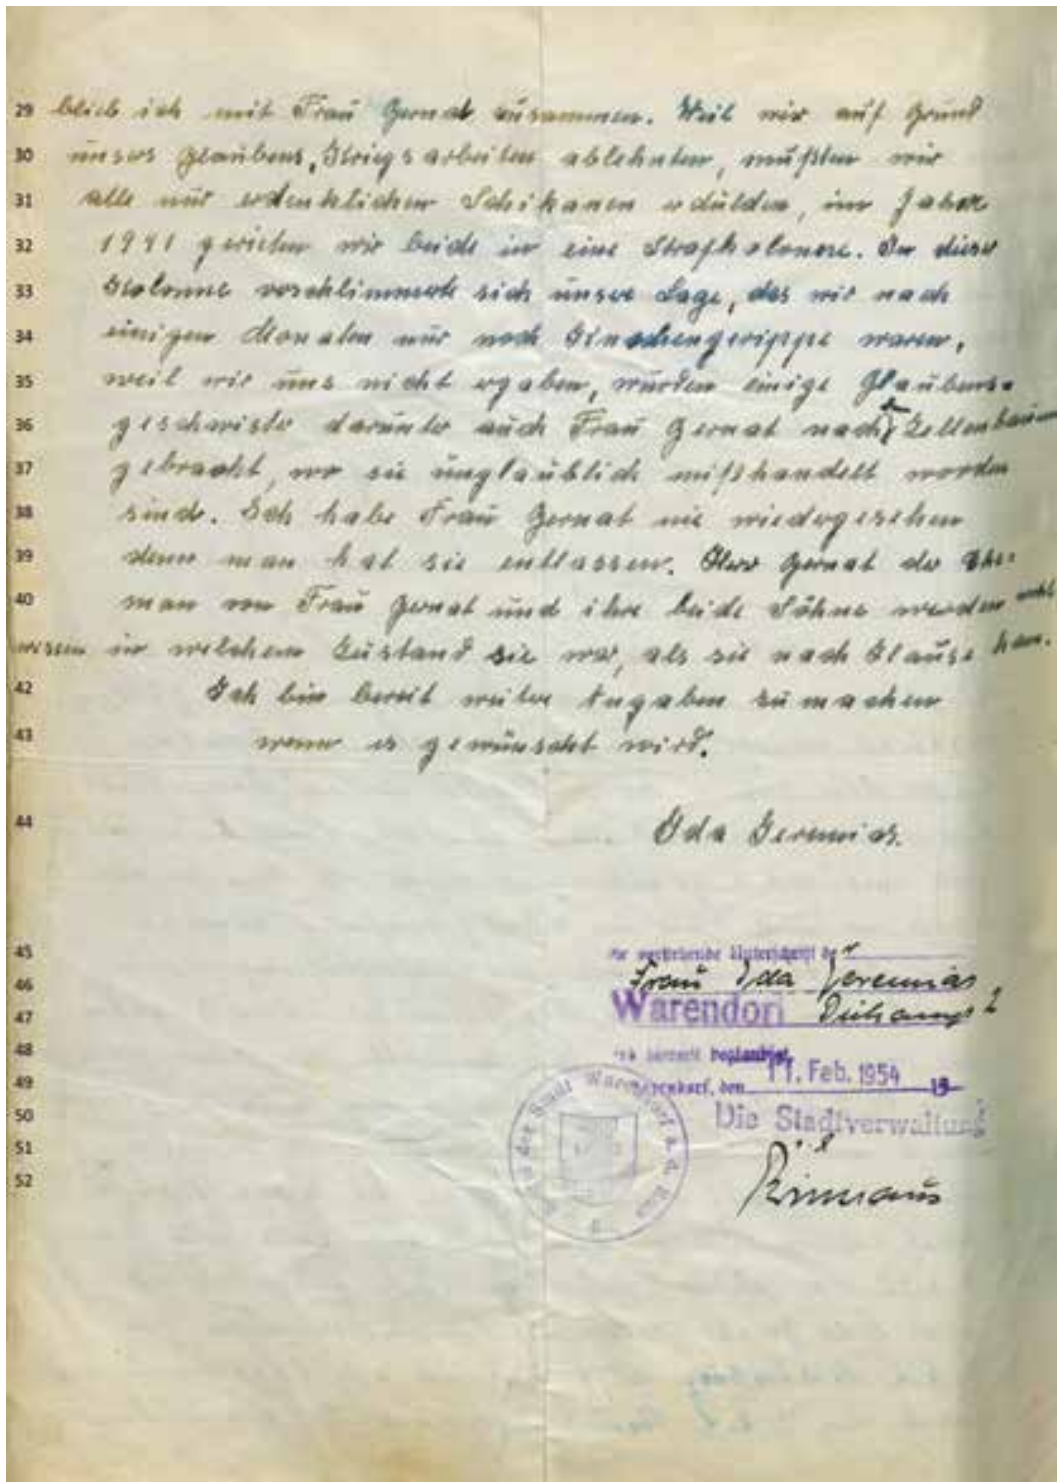 29 blieb ich mit Frau Gernat zusammen. Weil wir auf Grund
30 unsers Glaubens, Kriegsarbeiten ablehnten, mußten wir
31 alle nur erdenklichen Schikanen erdulden, im Jahre
32 1941 gerieten wir beide in eine Strafkolonne. In dieser
33 Kolonne verschlimmerte sich unsere Lage, das wir nach
34 einigen Monaten nur noch Knochengerippe waren,
35 weil wir uns nicht ergaben, wurden einige Glaubens-
36 geschwister darunter auch Frau Gernat nach Zellenbau
37 gebracht, wo sie unglaublich mißhandelt worden
38 sind. Ich habe Frau Gernat nie wiedergesehen
39 denn man hat sie entlassen. Herr Gernat der Ehe-
40 man von Frau Gernat und ihre beide Söhne werden wohl
wissen in welchem Zustand sie war, als sie nach Hause kam.
42 Ich bin bereit weitere Angaben zu machen
43 wenn es gewünscht wird.
44 Ida Jeremias.
45 vorstehende Unterschrift der
46 Frau Ida Jeremias
47 Warendorf
48 wird hiermit beglaubigt.
49 Warendorf, den 11. Feb. 1954 19
50 Die Stadtverwaltung
51
52
der Stadt Warendorf a. d. Ems